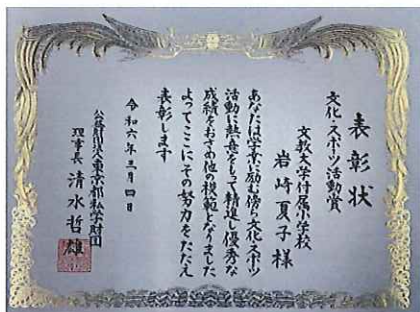 表彰状
文化・スポーツ活動賞
文教大学付属小学校
岩崎夏子様
あなたは学業に励む傍ら文化・スポーツ
活動に熱意をもって精進し優秀な
成績をおさめ他の模範となりました
よってここにその努力をたたえ
表彰します
令和六年三月四日
公益財団法人東京都私学財団
理事長 清水哲雄